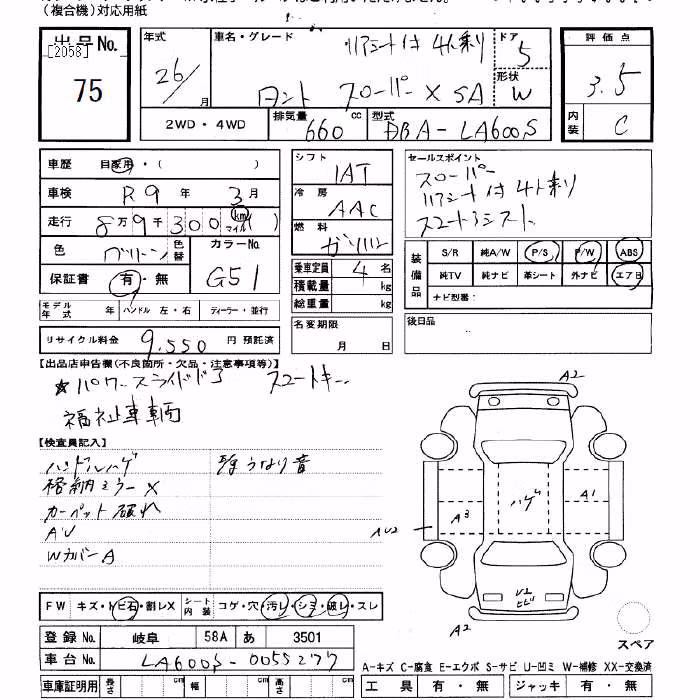 (複合機)対応用紙
出品No.
[2058]
75
年式
26/
月
車名・グレード
リアシート付 4人乗り
タント スローパー X SA
ドア
5
形状
W
2WD・4WD
排気量
660 cc
型式
DBA-LA600S
評価点
3.5
内装
C
車歴 自家用・( )
車検 R9 年 3 月
走行 8万9千300 km マイル
色 グリーン 色替 カラーNo. G51
保証書 有・無
モデル年式 年 ハンドル 左・右 ディーラー・並行
リサイクル料金 9,550 円 預託済
シフト
1AT
冷房
AAC
燃料
ガソリン
乗車定員 4 名
積載量 kg
総重量 kg
名変期限
月 日
セールスポイント
スローパー
リアシート付 4人乗り
スマートアシスト
装備品
S/R 純A/W P/S P/W ABS
純TV 純ナビ 革シート 外ナビ エアB
ナビ型番:
後日品
【出品店申告欄(不良箇所・欠品・注意事項等)】
★パワースライドドア スマートキー
福祉車輌
【検査員記入】
ハンドルハゲ
格納ミラーX
カーペット破れ
AV
WカバーA
うなり音
FW キズ・トビ石・割レX シート内装 コゲ・穴・汚レ・シミ・破レ・スレ
登録No. 岐阜 58A あ 3501
車台No. LA600S-0055277
車庫証明用 長さ cm 幅 cm 高さ cm
A2
A1
ハゲ
A3
AU2
U2
ヒビ
A2
スペア
A-キズ C-腐食 E-エクボ S-サビ U-凹ミ W-補修 XX-交換済
工具 有・無 ジャッキ 有・無